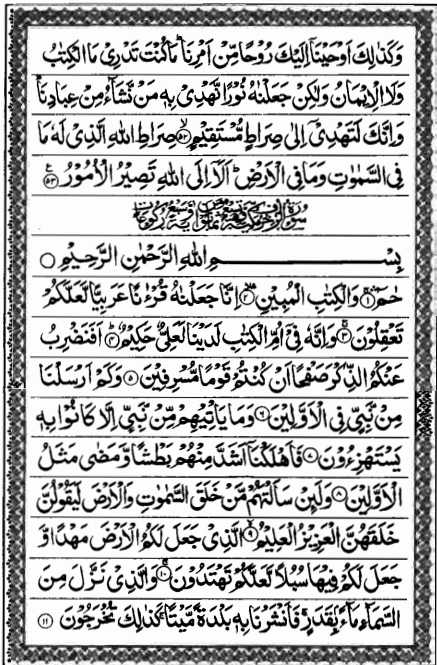 وَكَذٰلِكَ اَوْحَيْنَاۤ اِلَيْكَ رُوْحًا مِّنْ اَمْرِنَا ؕ مَا كُنْتَ تَدْرِىْ مَا الْكِتٰبُ
وَلَا الْاِيْمَانُ وَلٰكِنْ جَعَلْنٰهُ نُوْرًا نَّهْدِىْ بِهٖ مَنْ نَّشَآءُ مِنْ عِبَادِنَا ؕ
وَاِنَّكَ لَتَهْدِىْۤ اِلٰى صِرَاطٍ مُّسْتَقِيْمٍ ۙ۵۲ صِرَاطِ اللّٰهِ الَّذِىْ لَهٗ مَا
فِى السَّمٰوٰتِ وَمَا فِى الْاَرْضِ ؕ اَلَاۤ اِلَى اللّٰهِ تَصِيْرُ الْاُمُوْرُ ۵۳ ع
بِسْمِ اللّٰهِ الرَّحْمٰنِ الرَّحِيْمِ ○
حٰمٓ ۚ۱ وَالْكِتٰبِ الْمُبِيْنِ ۙ۲ اِنَّا جَعَلْنٰهُ قُرْءٰنًا عَرَبِيًّا لَّعَلَّكُمْ
تَعْقِلُوْنَ ۚ۳ وَاِنَّهٗ فِىْۤ اُمِّ الْكِتٰبِ لَدَيْنَا لَعَلِىٌّ حَكِيْمٌ ؕ۴ اَفَنَضْرِبُ
عَنْكُمُ الذِّكْرَ صَفْحًا اَنْ كُنْتُمْ قَوْمًا مُّسْرِفِيْنَ ۵ وَكَمْ اَرْسَلْنَا
مِنْ نَّبِىٍّ فِى الْاَوَّلِيْنَ ۶ وَمَا يَاْتِيْهِمْ مِّنْ نَّبِىٍّ اِلَّا كَانُوْا بِهٖ
يَسْتَهْزِءُوْنَ ۷ فَاَهْلَكْنَاۤ اَشَدَّ مِنْهُمْ بَطْشًا وَّمَضٰى مَثَلُ
الْاَوَّلِيْنَ ۸ وَلَئِنْ سَاَلْتَهُمْ مَّنْ خَلَقَ السَّمٰوٰتِ وَالْاَرْضَ لَيَقُوْلُنَّ
خَلَقَهُنَّ الْعَزِيْزُ الْعَلِيْمُ ۙ۹ الَّذِىْ جَعَلَ لَكُمُ الْاَرْضَ مَهْدًا وَّ
جَعَلَ لَكُمْ فِيْهَا سُبُلًا لَّعَلَّكُمْ تَهْتَدُوْنَ ۚ۱۰ وَالَّذِىْ نَزَّلَ مِنَ
السَّمَآءِ مَآءًۢ بِقَدَرٍ ۚ فَاَنْشَرْنَا بِهٖ بَلْدَةً مَّيْتًا ۚ كَذٰلِكَ تُخْرَجُوْنَ ۱۱